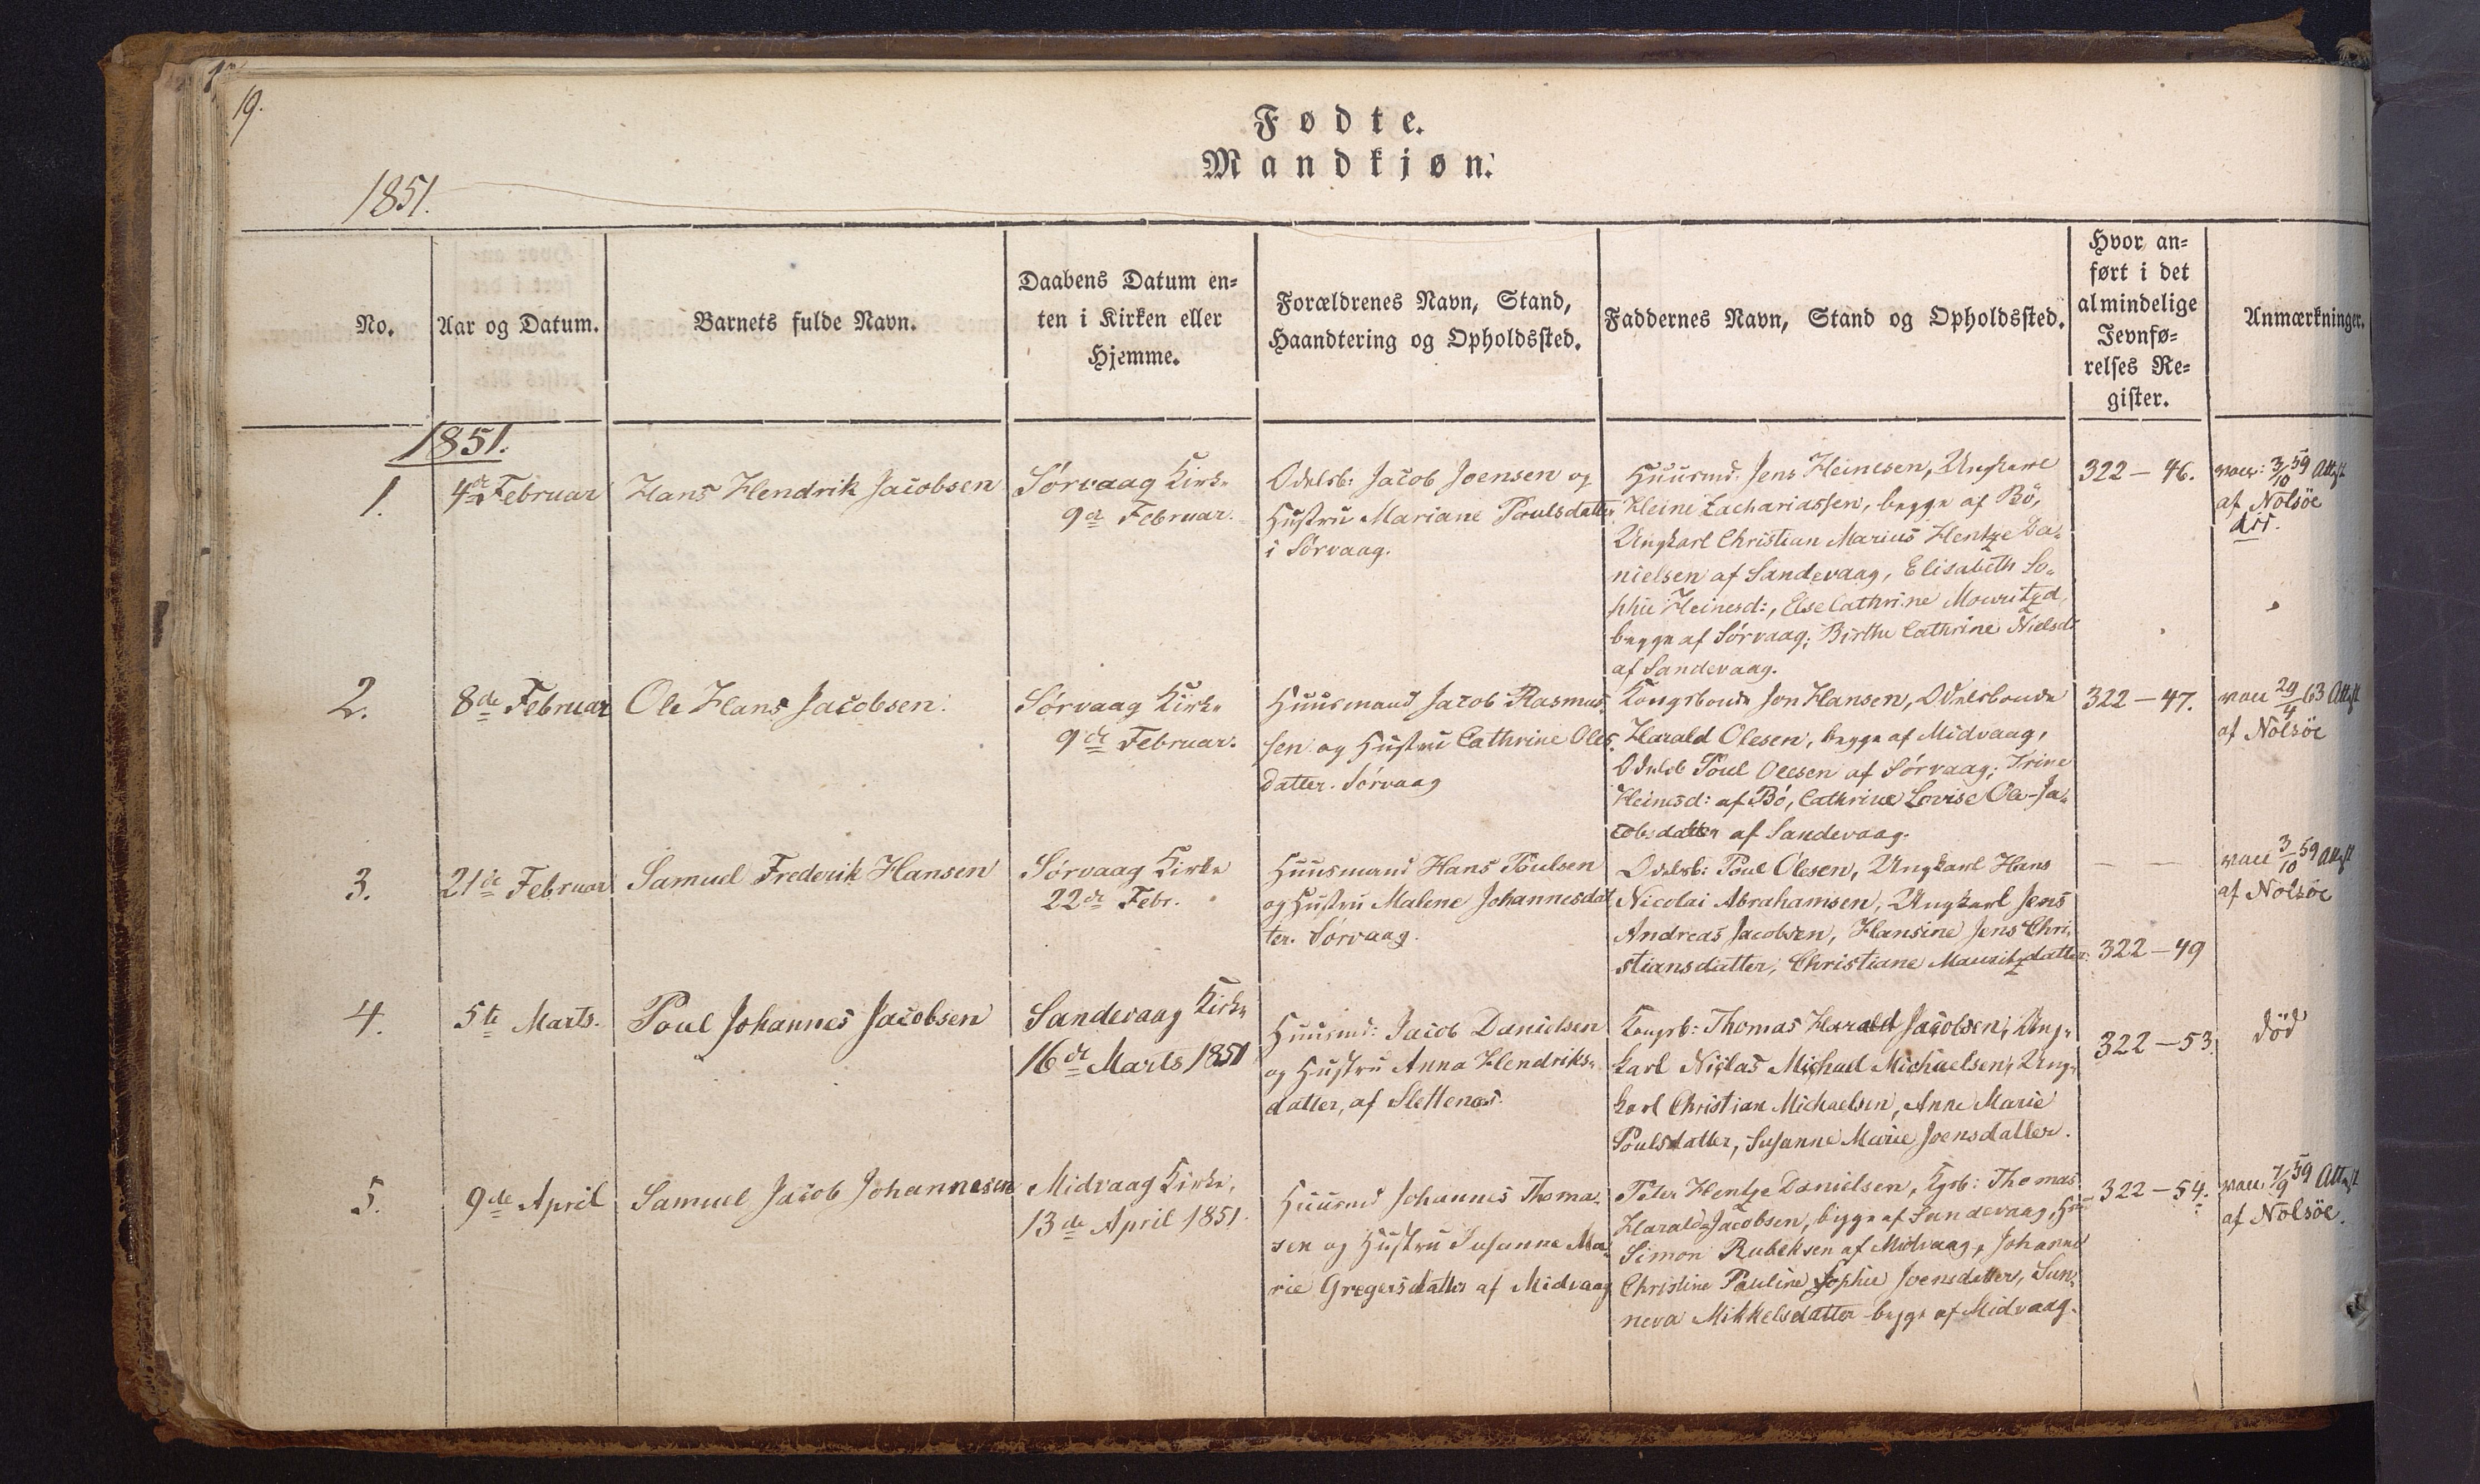 19.
Fødte.
Mandkjøn.
1851.
No.
Aar og Datum.
Barnets fulde Navn.
Daabens Datum en-
ten i Kirken eller
Hjemme.
Forældrenes Navn, Stand,
Haandtering og Opholdssted.
Faddernes Navn, Stand og Opholdssted.
Hvor an-
ført i det
almindelige
Jevnfø-
relses Re-
gister.
Anmærkninger.
1851.
1.
4de Februar
Hans Hendrik Jacobsen
Sørvaag Kirke
9de Februar.
Odelsb: Jacob Joensen og
Hustru Mariane Poulsdatter
i Sørvaag.
Huusmd. Jens Heinesen, Ungkarl
Heine Zachariassen, begge af Bö,
Ungkarl Christian Marius Hentze Da-
nielsen af Sandevaag, Elisabeth So-
phie Heinesd:, Else Cathrine Mouritzd,
begge af Sørvaag; Birthe Cathrine Nielsd:
af Sandevaag.
322 — 46.
vacc: 3/10 59 Attest
af Nolsöe
2.
8de Februar
Ole Hans Jacobsen.
Sørvaag Kirke
9de Februar.
Huusmand Jacob Rasmus-
sen og Hustru Cathrine Oles-
datter. Sørvaag
Kongsbonde Jon Hansen, Odelsbonde
Harald Olesen, begge af Midvaag,
Odelsb Poul Olesen af Sørvaag; Trine
Heinesd: af Bö, Cathrine Lovise Ole-Ja-
cobsdatter af Sandevaag.
322 — 47.
vacc 29/4 63 Attest
af Nolsöe
3.
21de Februar
Samuel Frederik Hansen
Sørvaag Kirke
22de Febr.
Huusmand Hans Poulsen
og Hustru Malene Johannesdat
ter. Sørvaag.
Odelsb: Poul Olesen, Ungkarl Hans
Nicolai Abrahamsen, Ungkarl Jens
Andreas Jacobsen, Hansine Jens Chri-
stiansdatter, Christiane Mauritzdatter.
— —
322 — 49
vacc 3/10 59 Attest
af Nolsöe
4.
5te Marts.
Poul Johannes Jacobsen
Sandevaag Kirke
16de Marts 1851
Huusmd: Jacob Danielsen
og Hustru Anna Hendriks-
datter, af Slettenæs.
Kongsb: Thomas Harald Jacobsen, Ung-
karl Niclas Michael Michaelsen, Ung-
karl Christian Michaelsen, Anne Marie
Poulsdatter, Susanne Marie Joensdatter.
322 — 53.
död
5.
9de April
Samuel Jacob Johannesen
Midvaag Kirke,
13de April 1851.
Huusmd Johannes Thoma-
sen og Hustru Susanne Ma-
rie Gregersdatter af Midvaag
Peter Hentze Danielsen, Kgsb: Thomas
Harald Jacobsen, begge af Sandevaag,
Simon Rubeksen af Midvaag, Johanne
Christine Pauline Sophie Joensdatter, Sun-
neva Mikkelsdatter begge af Midvaag.
322 — 54.
vacc 7/9 59 Attest
af Nolsöe.